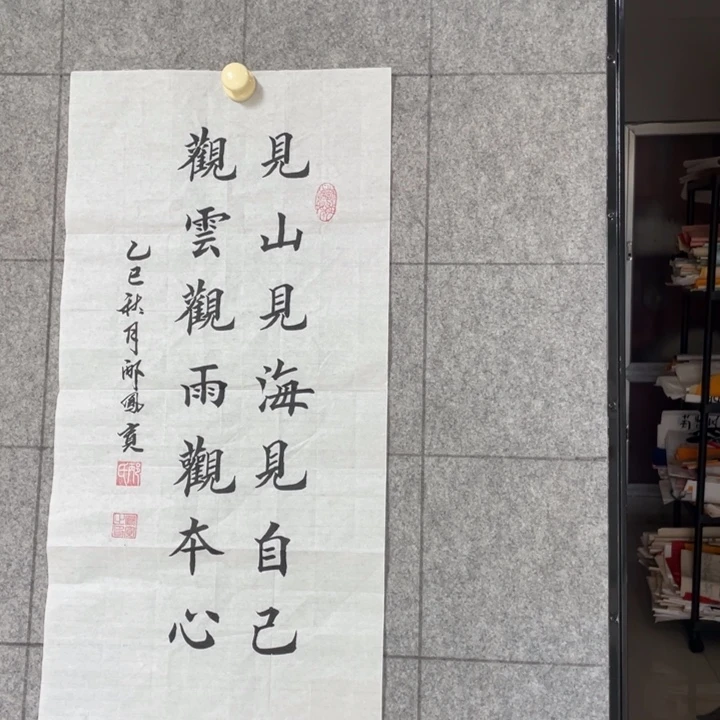 見山見海見自己
觀雲觀雨觀本心
乙巳秋月邴鳳賓